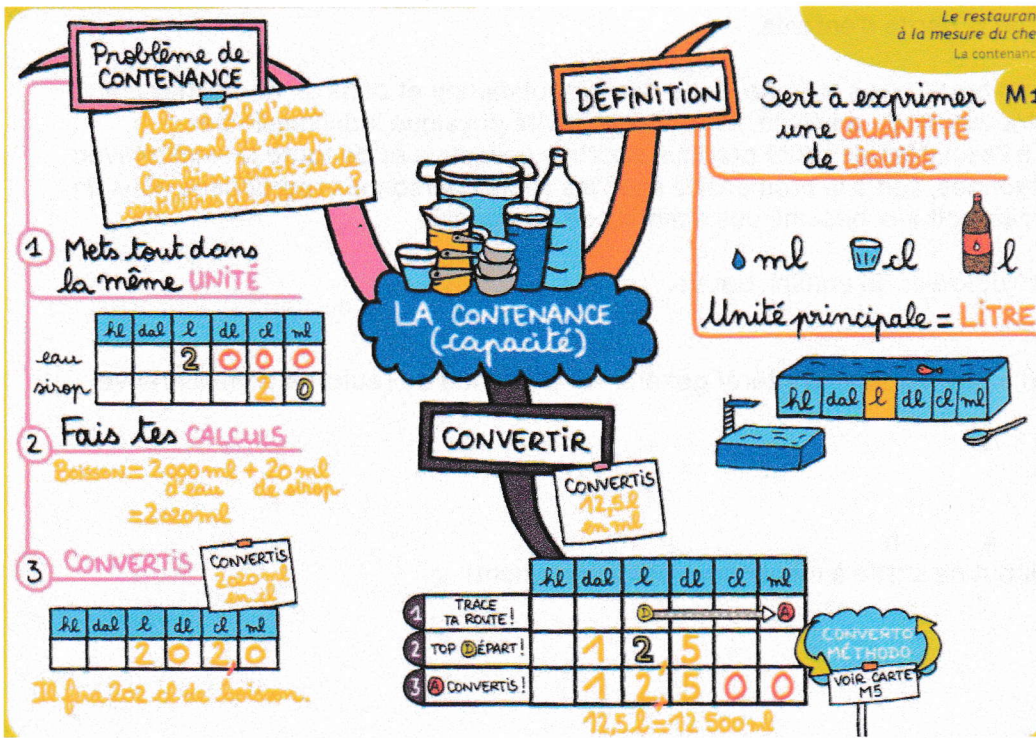 Le restauran
à la mesure du che
La contenanc
M1
Problème de
CONTENANCE
Alix a 2 l d'eau
et 20 ml de sirop.
Combien fera-t-il de
centilitres de boisson ?
1 Mets tout dans
la même UNITÉ
hl dal l dl cl ml
eau 2 0 0 0
sirop 2 0
2 Fais tes CALCULS
Boisson = 2000 ml + 20 ml
d'eau de sirop
= 2020 ml
3 CONVERTIS
CONVERTIS
2020 ml
en cl
hl dal l dl cl ml
2 0 2, 0
Il fera 202 cl de boisson.
LA CONTENANCE
(capacité)
DÉFINITION
Sert à exprimer
une QUANTITÉ
de LIQUIDE
ml cl l
Unité principale = LITRE
hl dal l dl cl ml
CONVERTIR
CONVERTIS
12,5 l
en ml
hl dal l dl cl ml
1 TRACE
TA ROUTE ! D A
2 TOP DÉPART ! 1 2, 5
3 A CONVERTIS ! 1 2, 5 0 0
12,5 l = 12 500 ml
CONVERTO
MÉTHODO
VOIR CARTE
M5